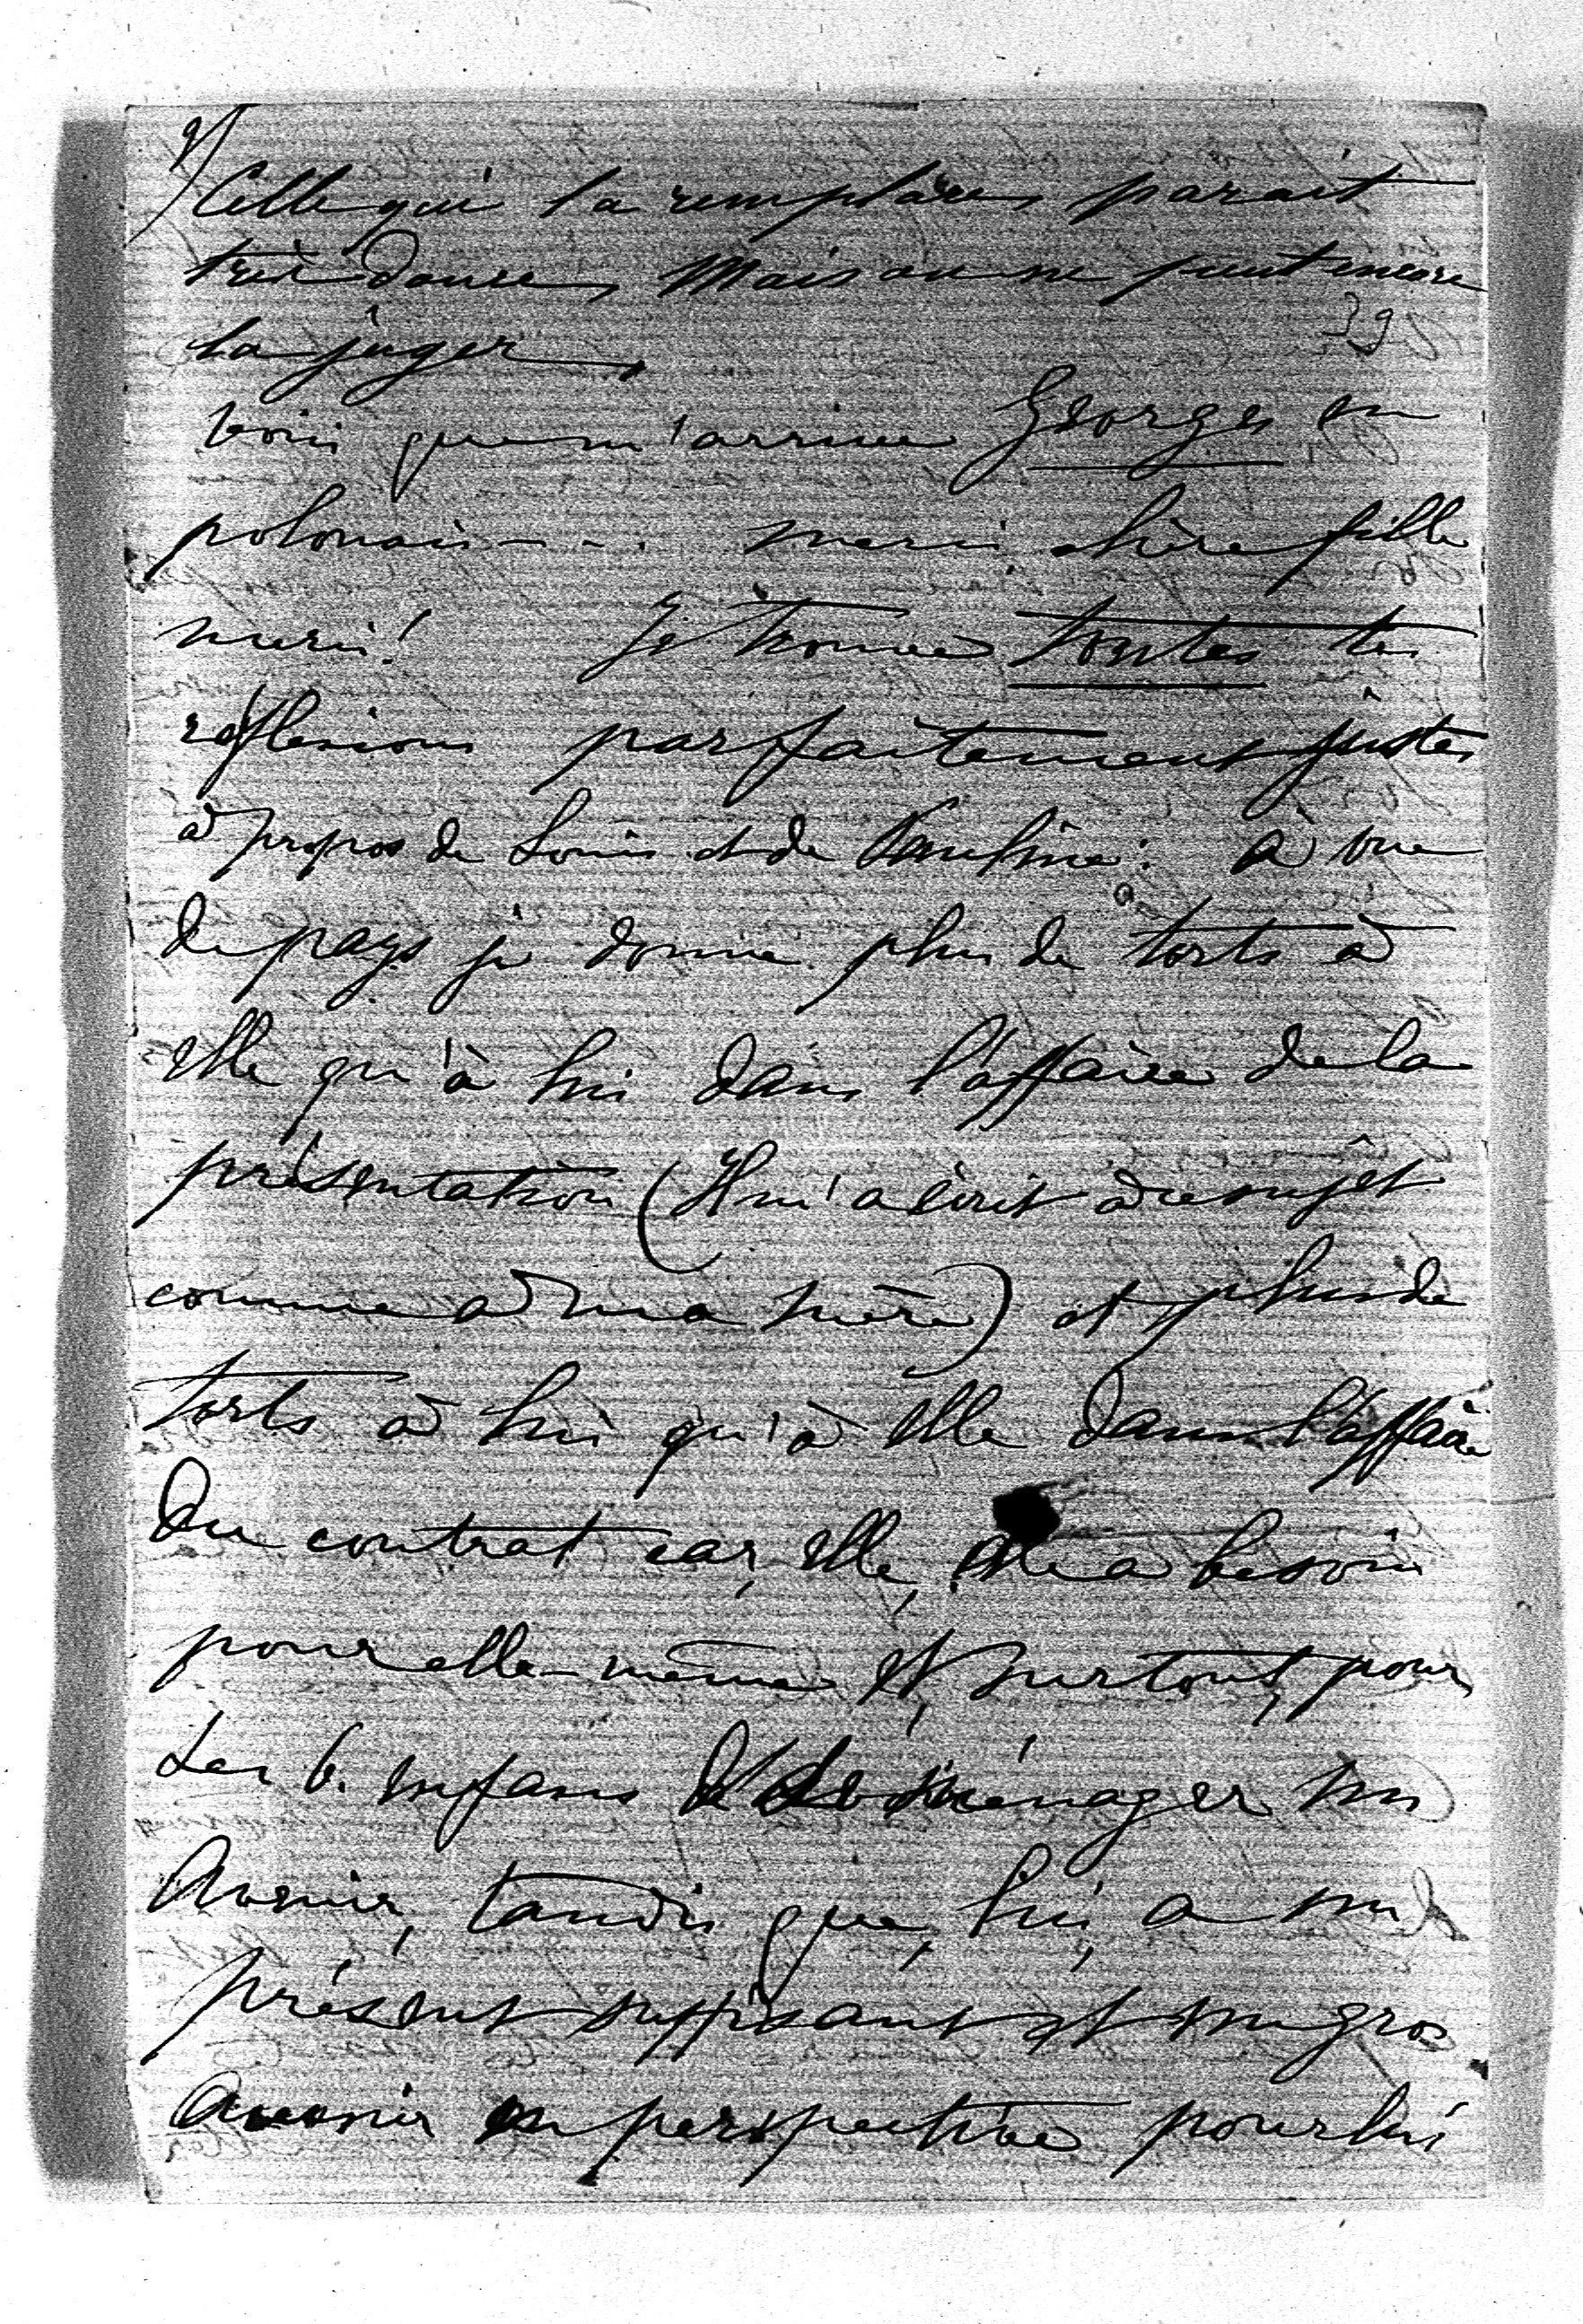 2/
Celle qui la remplacera parait
très douce, mais on ne peut encore
39
la juger.
Voici que m'arrive Georges en
polonais - - - . merci, chère fille
merci! Je trouve toutes tes
réflexions parfaitement justes
à propos de Louis et de Pauline: à vue
de pays je donne plus de torts à
elle qu'à lui dans l'affaire de la
présentation (Il m'a écrit à ce sujet
comme à ma mère) et plus de
torts à lui qu'à elle dans l'affaire
du contrat car, elle, elle a besoin
pour elle-même et, surtout, pour
les 6. enfans de ménager un
avenir, tandis que, lui, a un
présent suffisant et un gros
avenir en perspective pour lui